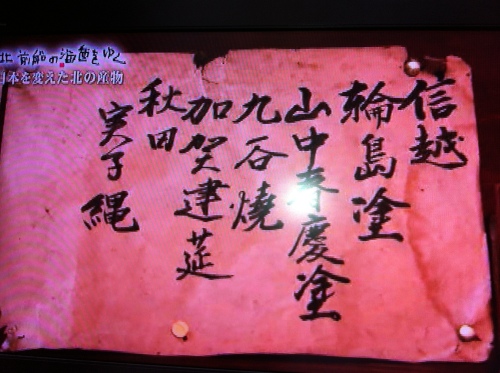 北前船の海道をゆく
日本を変えた北の産物
信越
輪島塗
山中春慶塗
九谷焼
加賀建莚
秋田
実子縄